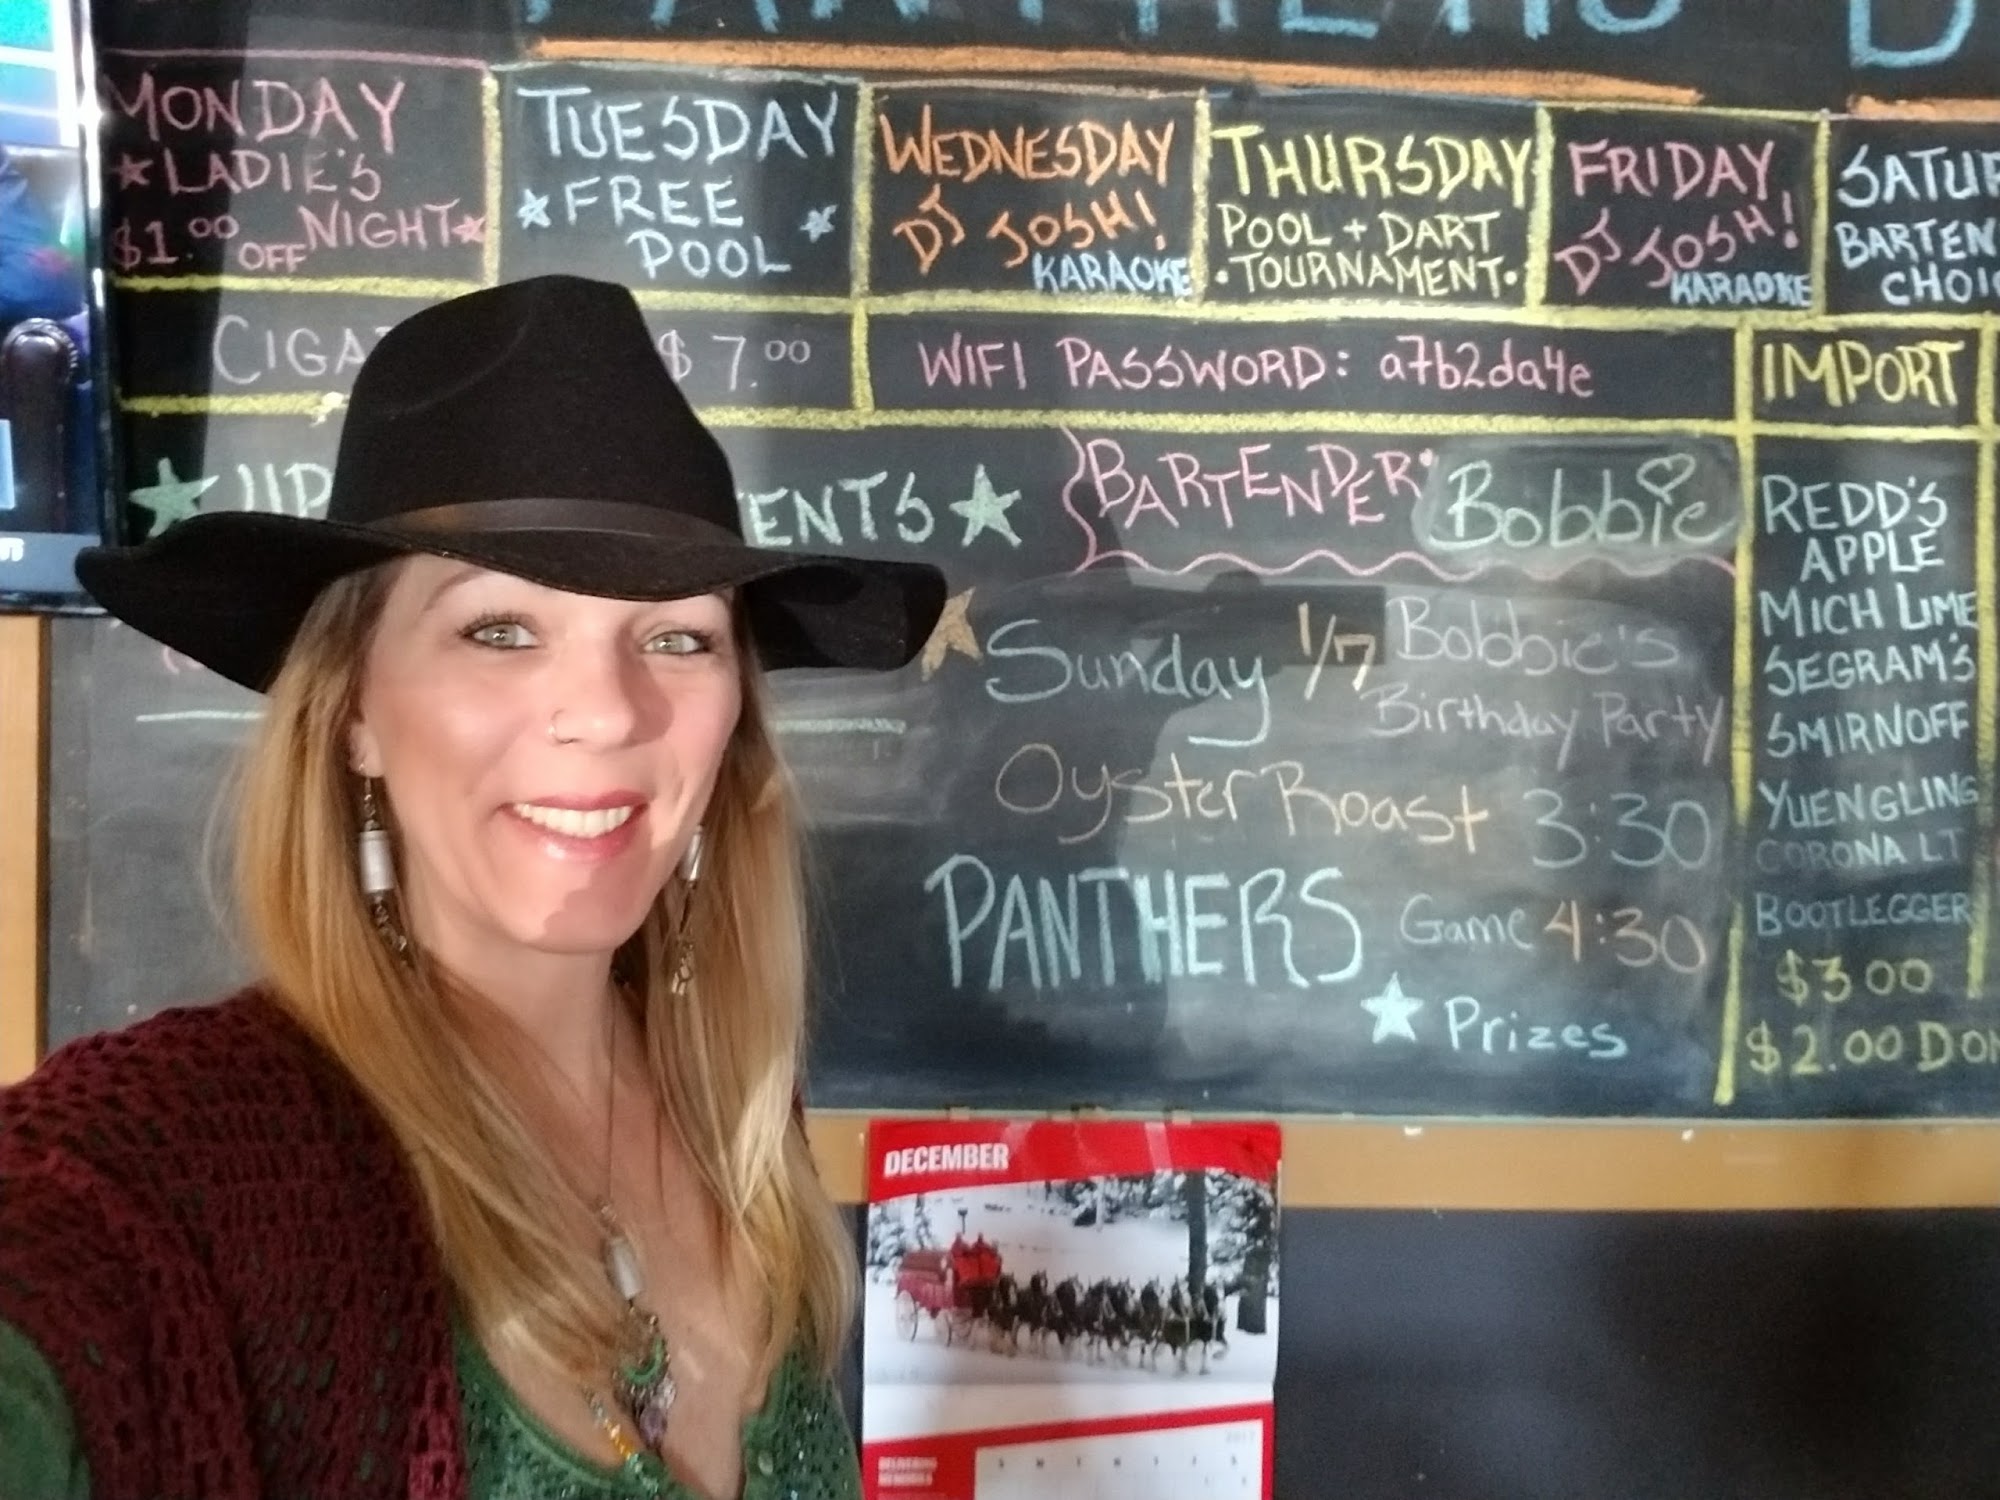 PANTHERS D
MONDAY
LADIE'S
NIGHT
$1.00 OFF
TUESDAY
FREE
POOL
WEDNESDAY
DJ JOSH!
KARAOKE
THURSDAY
POOL + DART
•TOURNAMENT•
FRIDAY
DJ JOSH!
KARAOKE
SATUR
BARTEN
CHOIC
CIGA
$7.00
WIFI PASSWORD: a7b2da4e
IMPORT
UP
ENTS
BARTENDER: Bobbie
Sunday 1/7 Bobbie's
Birthday Party
Oyster Roast 3:30
PANTHERS Game 4:30
Prizes
REDD'S
APPLE
MICH LIME
SEGRAM'S
SMIRNOFF
YUENGLING
CORONA LT
BOOTLEGGER
$3 00
$2.00 DOM
DECEMBER
2017
S M T W T F S
DELIVERING
MEMORIES